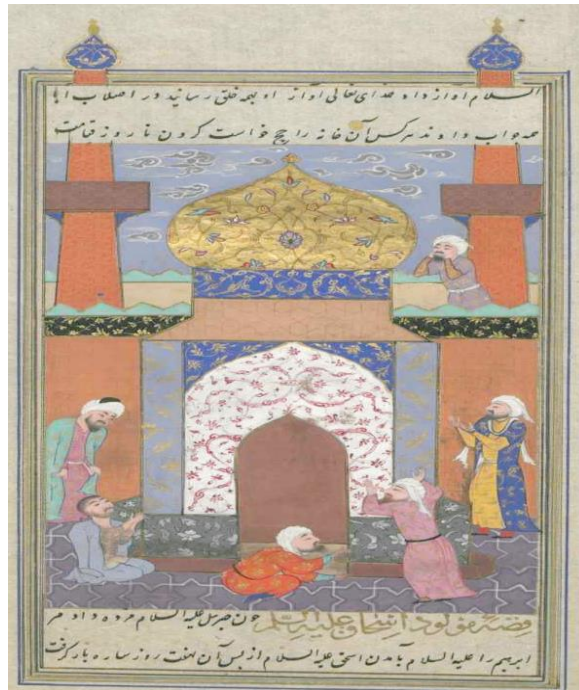 السلام اواز داد خدای تعالی اواز او بهمه خلق رسانید در اصلاب ابا
همه جواب دادند هرکس آن خانه را حج خواست کردن تا روز قیامت
قصه مولود اسحاق علیه السلم چون جبرئیل علیه السلام مژده داد مر
ابرهیم را علیه السلام بآمدن اسحق علیه السلام از پس آن هفت روز ساره بار گرفت